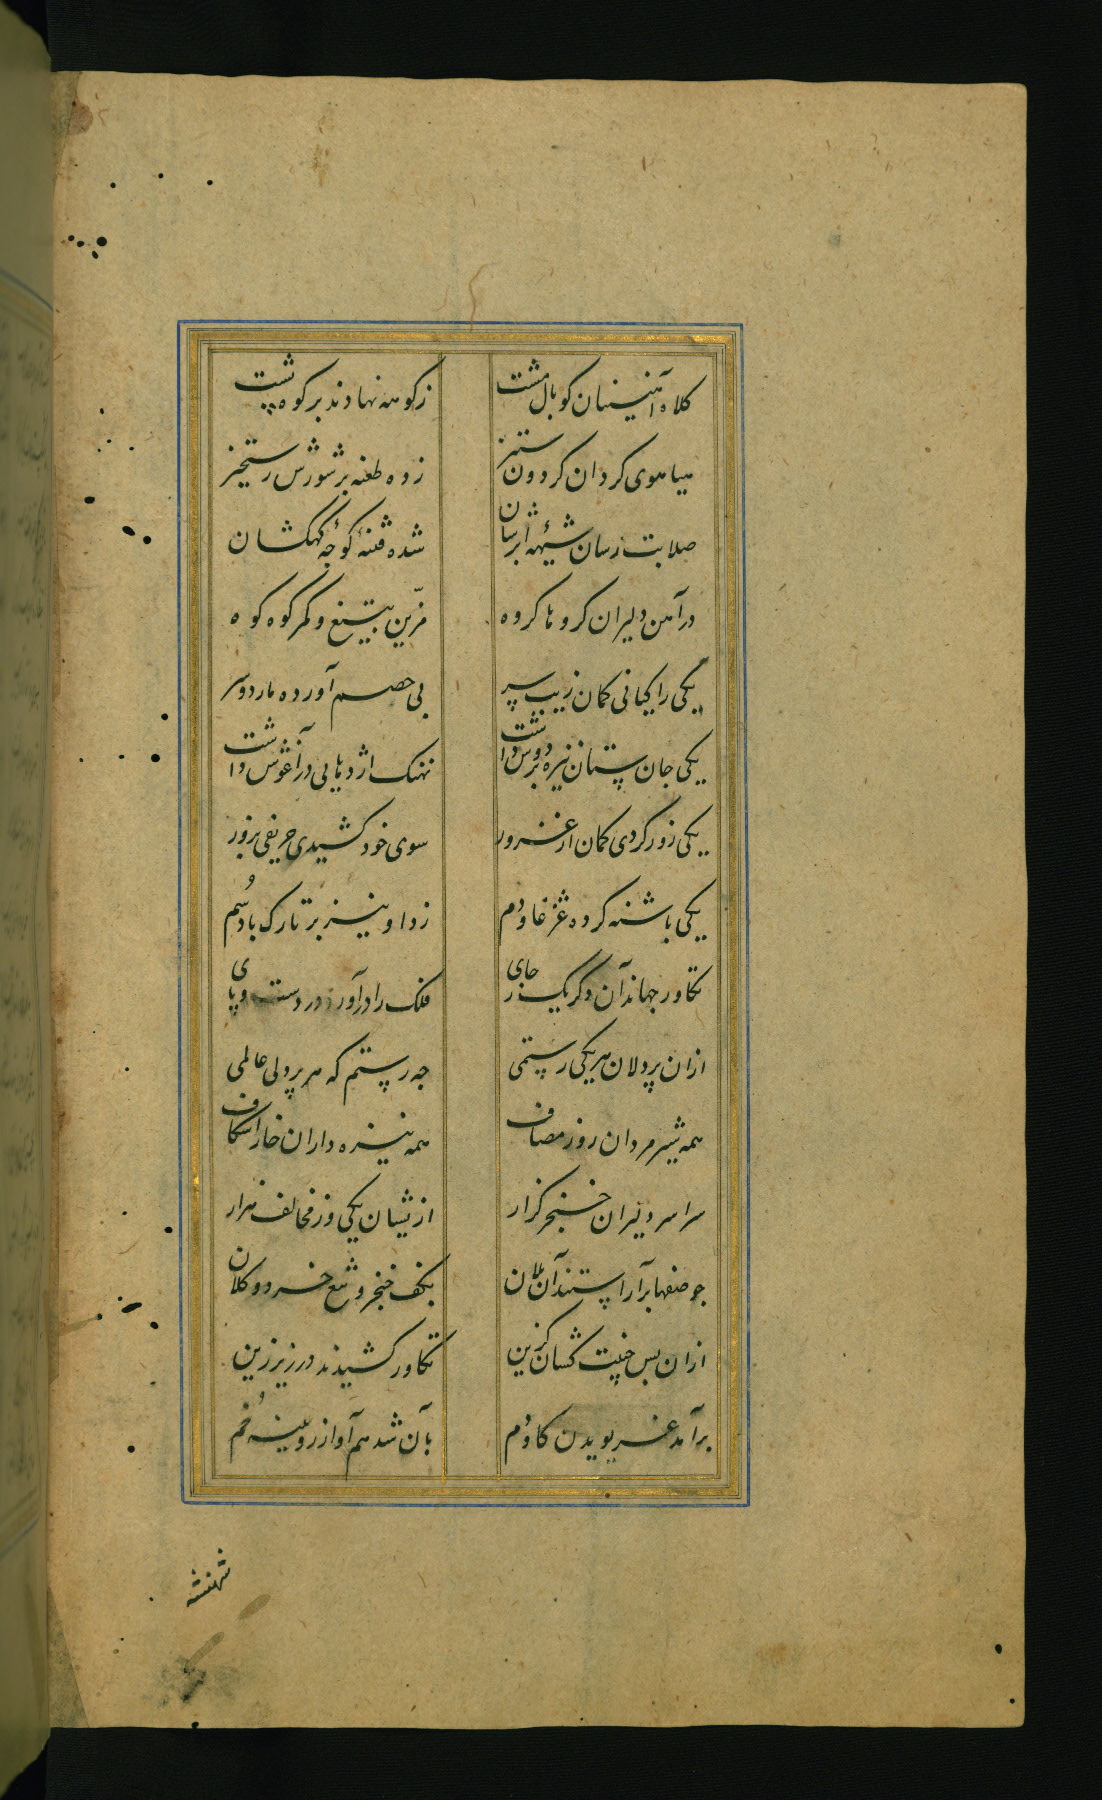 کلاه آهنینان کوبال مشت زکوهه نهادند بر کوه پشت
هیاهوی کردان کردون ستیز زده طعنه بر شورش رستخیز
صلابت رسان شیهه ابرسان شده فتنه کوچه کهکشان
در آهن دلیران کروها کروه مزین بتیغ و کمر کوه کوه
یکی را کیانی کمان زیب سر پی خصم آورده مار دوسر
یکی جان ستان نیزه بر دوش داشت نهنک اژدهایی در آغوش داشت
یکی زور کردی کمان از غرور سوی خود کشیدی حریفی بزور
یکی باشنه کرده غژغاو دم زد او نیز بر تارک باد سُم
تکاور جهاندان دکر یک ز جای فلک را در آورد در دست و پای
ازان پردلان هریکی رستمی چه رستم که هر پردلی عالمی
همه شیر مردان روز مصاف همه نیزه داران خارا شکاف
سراسر دلیران خنجر کزار ازیشان یکی وز مخالف هزار
چو صفها بر آراستند آن یلان بکف خنجر و تیغ خرد و کلان
ازان بس جنیبت کشان کزین تکاور کشیدند در زیر زین
بر آمد غریویدن کاو دُم بآن شد هم آواز رویینه خُم
شهنشه